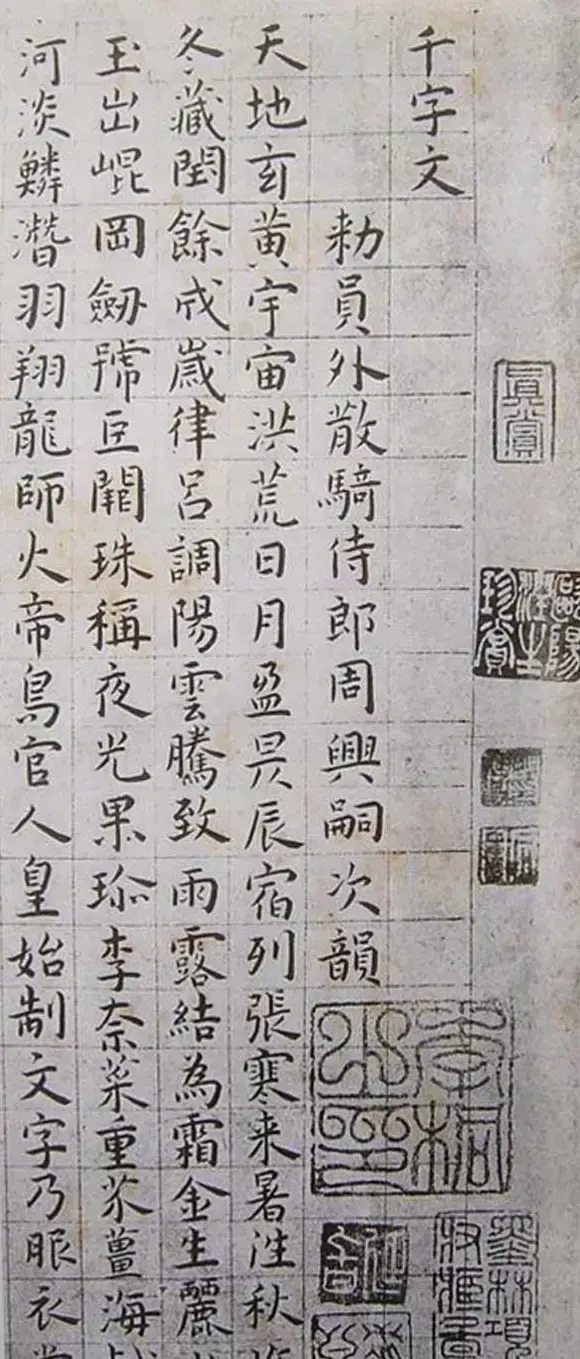 千字文
勑員外散騎侍郎周興嗣次韻
天地玄黄宇宙洪荒日月盈昃辰宿列張寒来暑往秋
冬藏閏餘成歲律呂調陽雲騰致雨露結為霜金生麗
玉出崐岡劔號巨闕珠稱夜光果珎李柰菜重芥薑海
河淡鱗潛羽翔龍師火帝鳥官人皇始制文字乃服衣
真賞